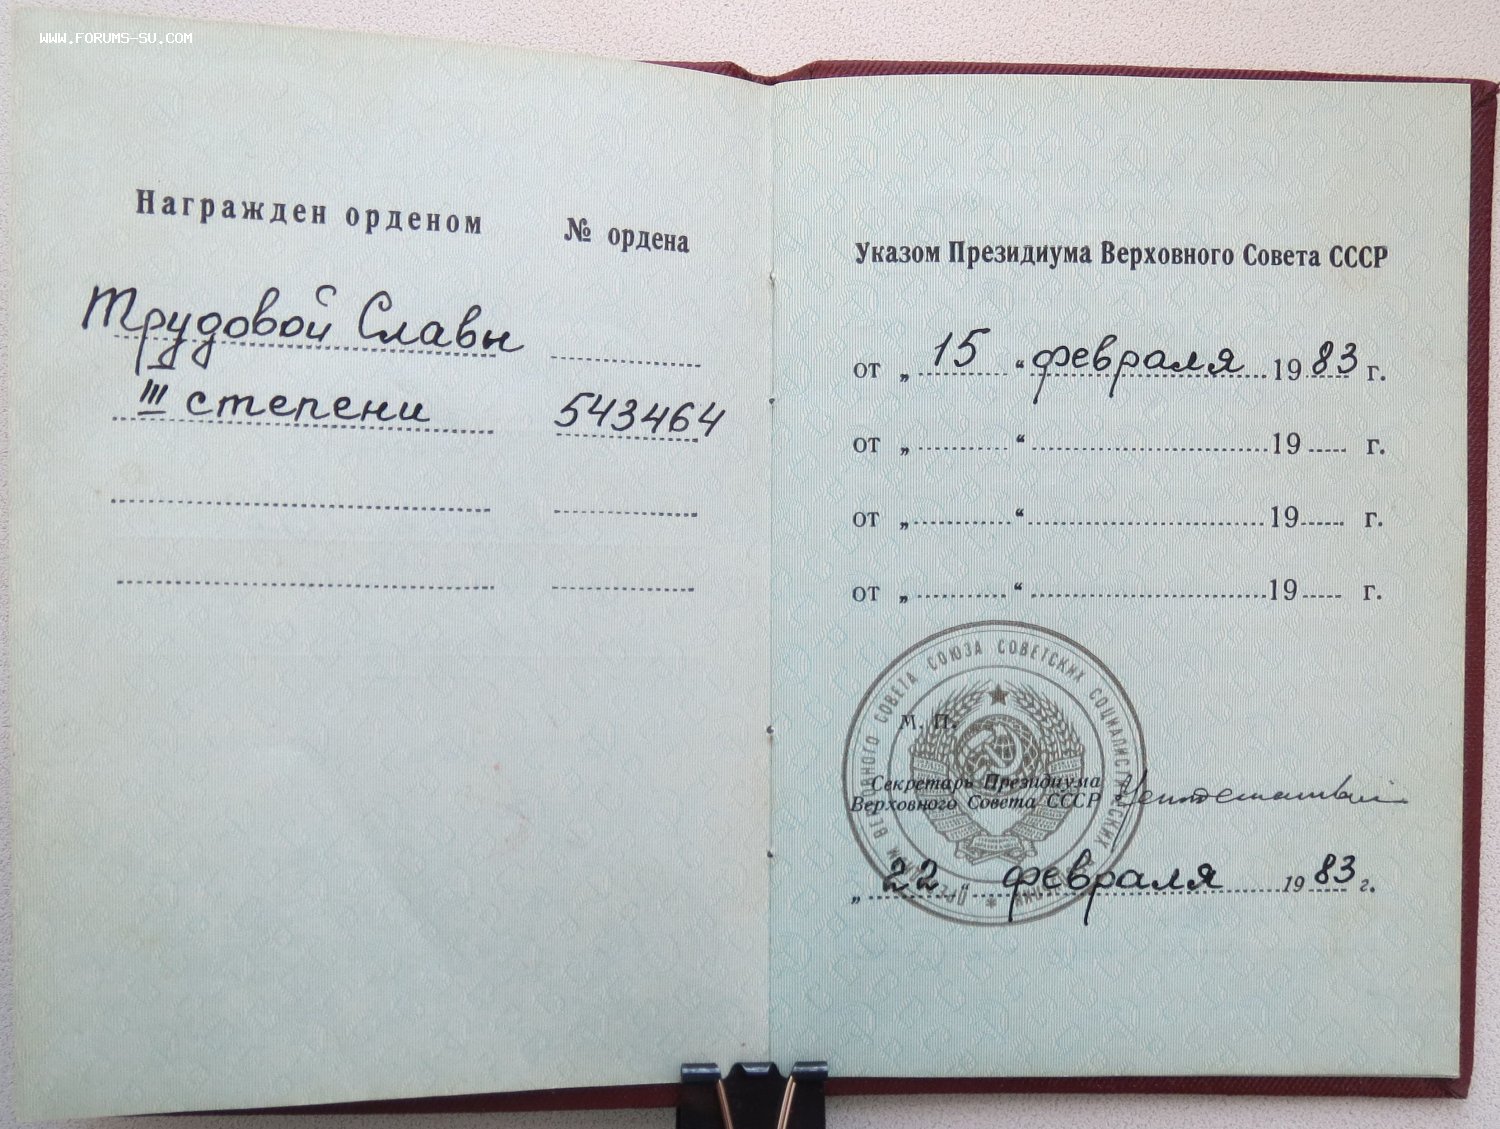 WWW.FORUMS-SU.COM
Награжден орденом № ордена
Трудовой Славы
III степени 543464
Указом Президиума Верховного Совета СССР
от „ 15 “ февраля 19 83 г.
от „ “ 19 г.
от „ “ 19 г.
от „ “ 19 г.
ПРЕЗИДИУМ ВЕРХОВНОГО СОВЕТА СОЮЗА СОВЕТСКИХ СОЦИАЛИСТИЧЕСКИХ
М. П.
Секретарь Президиума
Верховного Совета СССР
„ 22 “ февраля 19 83 г.